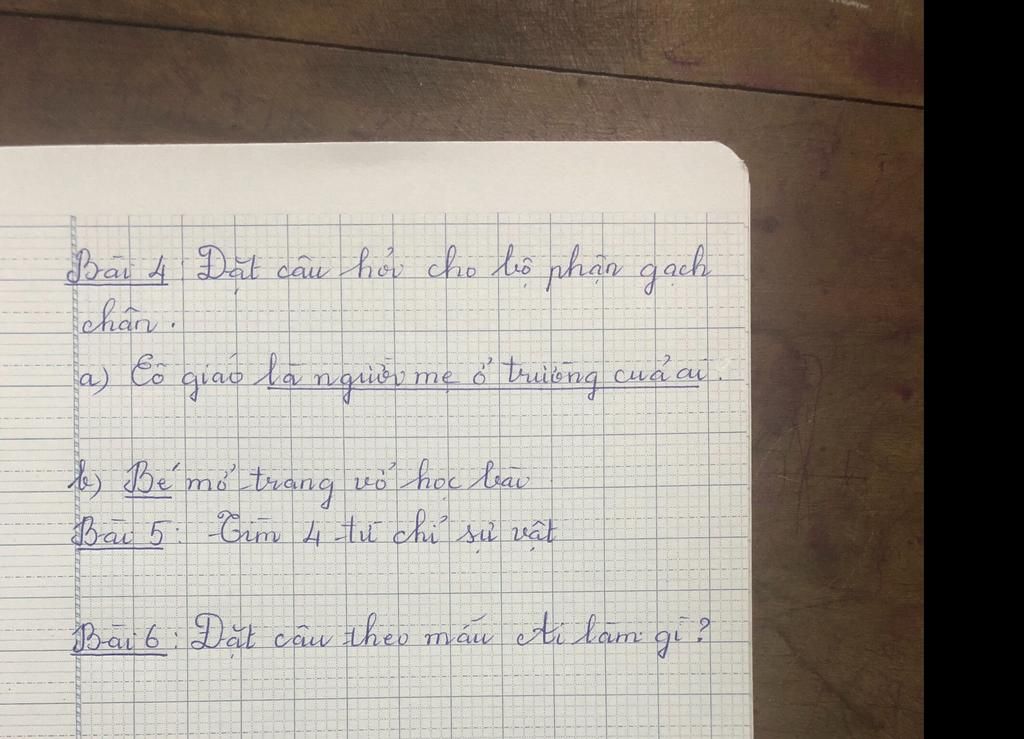 Bài 4: Đặt câu hỏi cho bộ phận gạch
chân.
a) Cô giáo là người mẹ ở trường của ai.
b) Bé mở trang vở học bài
Bài 5: Tìm 4 từ chỉ sự vật
Bài 6: Đặt câu theo mẫu Ai làm gì?